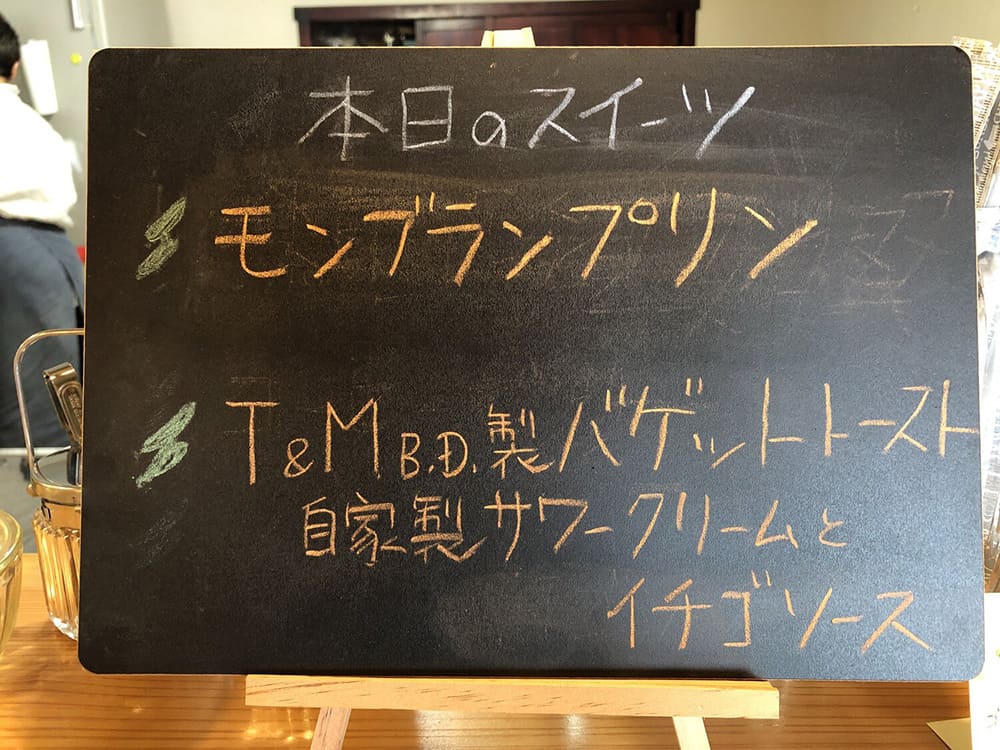 本日のスイーツ
モンブランプリン
T&M B.D.製バゲットトースト
自家製サワークリームと
イチゴソース